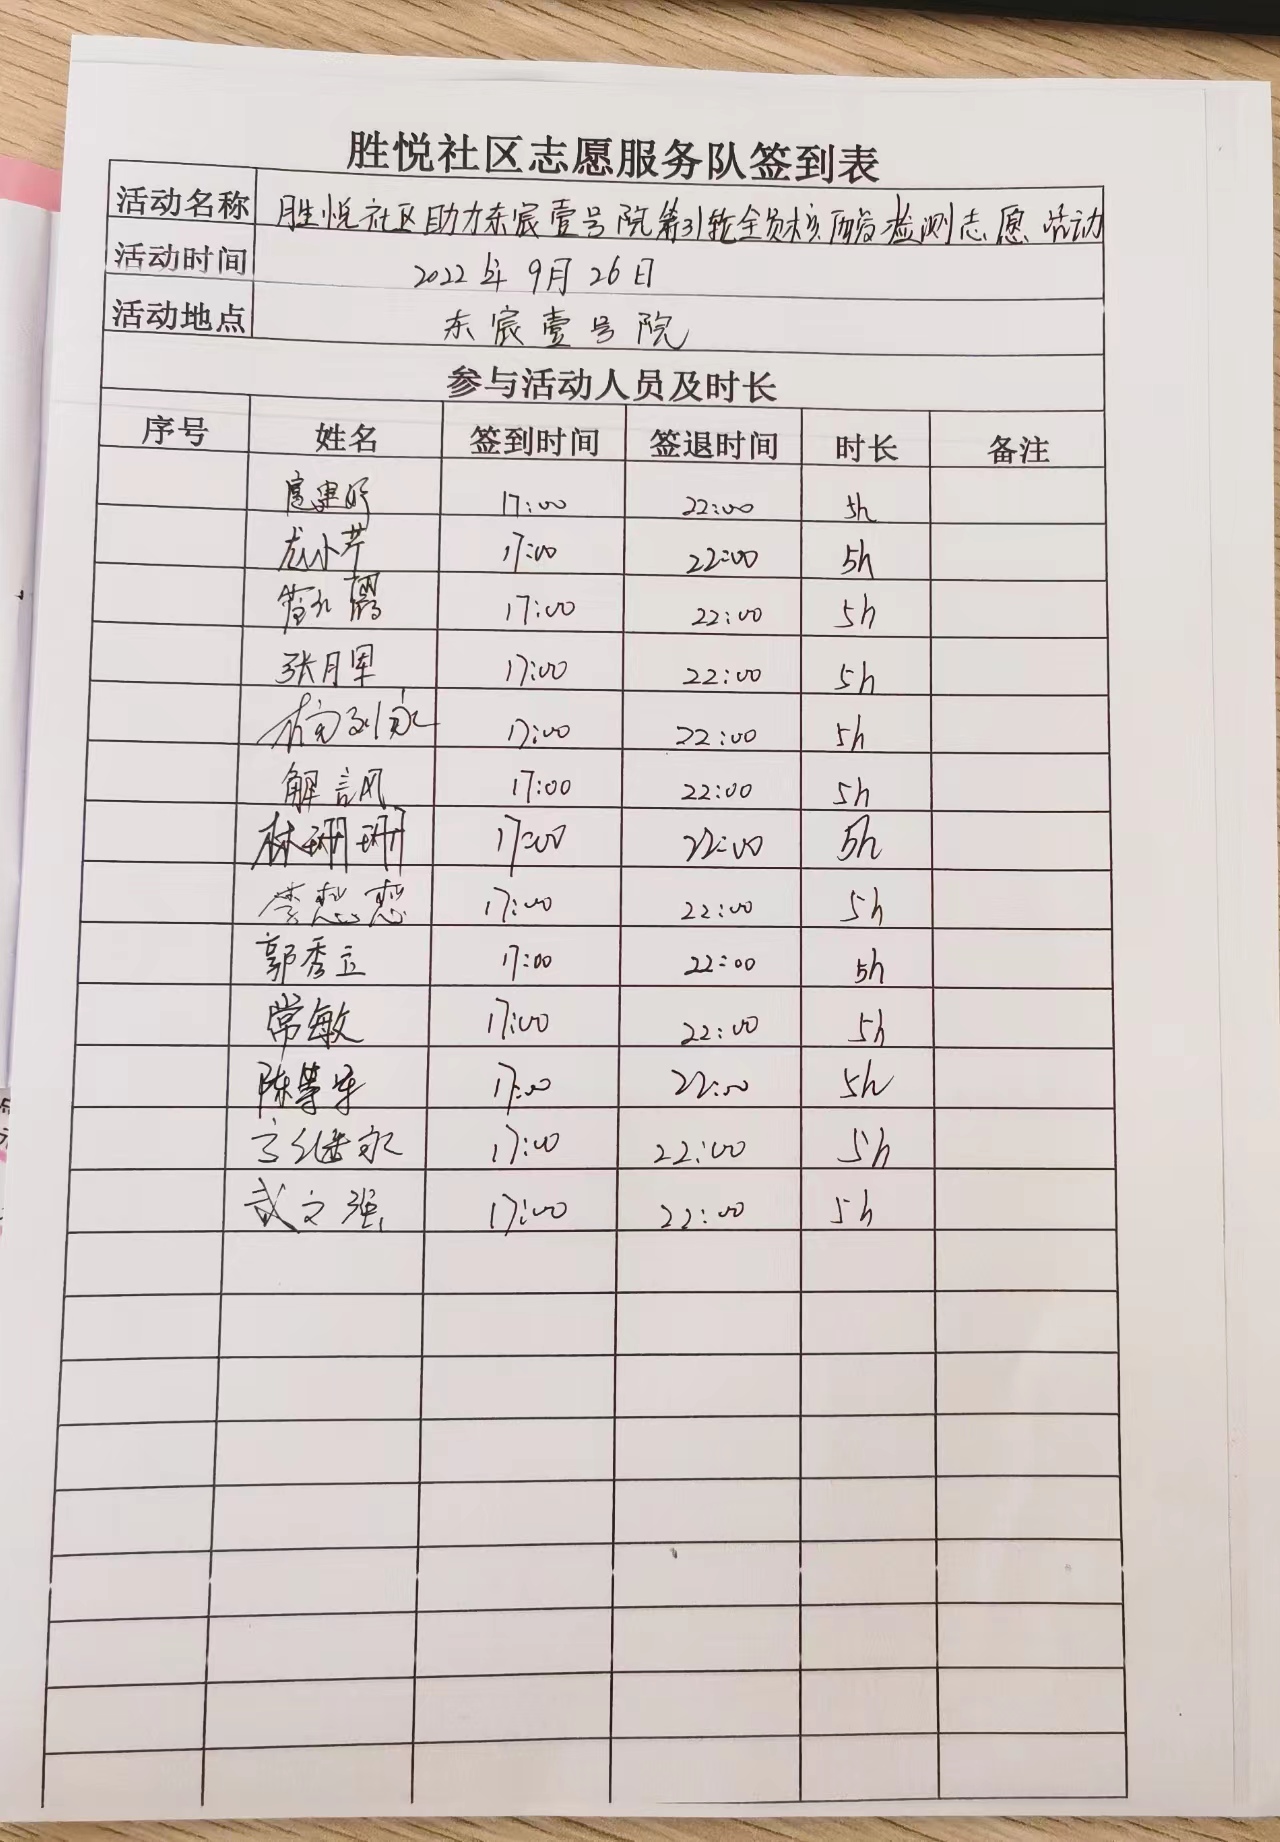 胜悦社区志愿服务队签到表
活动名称 胜悦社区助力东宸壹号院第31轮全员核酸检测志愿活动
活动时间 2022年9月26日
活动地点 东宸壹号院
参与活动人员及时长
序号 姓名 签到时间 签退时间 时长 备注
17:00 22:00 5h
尤小芹 17:00 22:00 5h
17:00 22:00 5h
张月军 17:00 22:00 5h
17:00 22:00 5h
解 17:00 22:00 5h
林珊珊 17:00 22:00 5h
李慧慧 17:00 22:00 5h
郭秀立 17:00 22:00 5h
常敏 17:00 22:00 5h
陈 17:00 22:00 5h
17:00 22:00 5h
武文强 17:00 22:00 5h